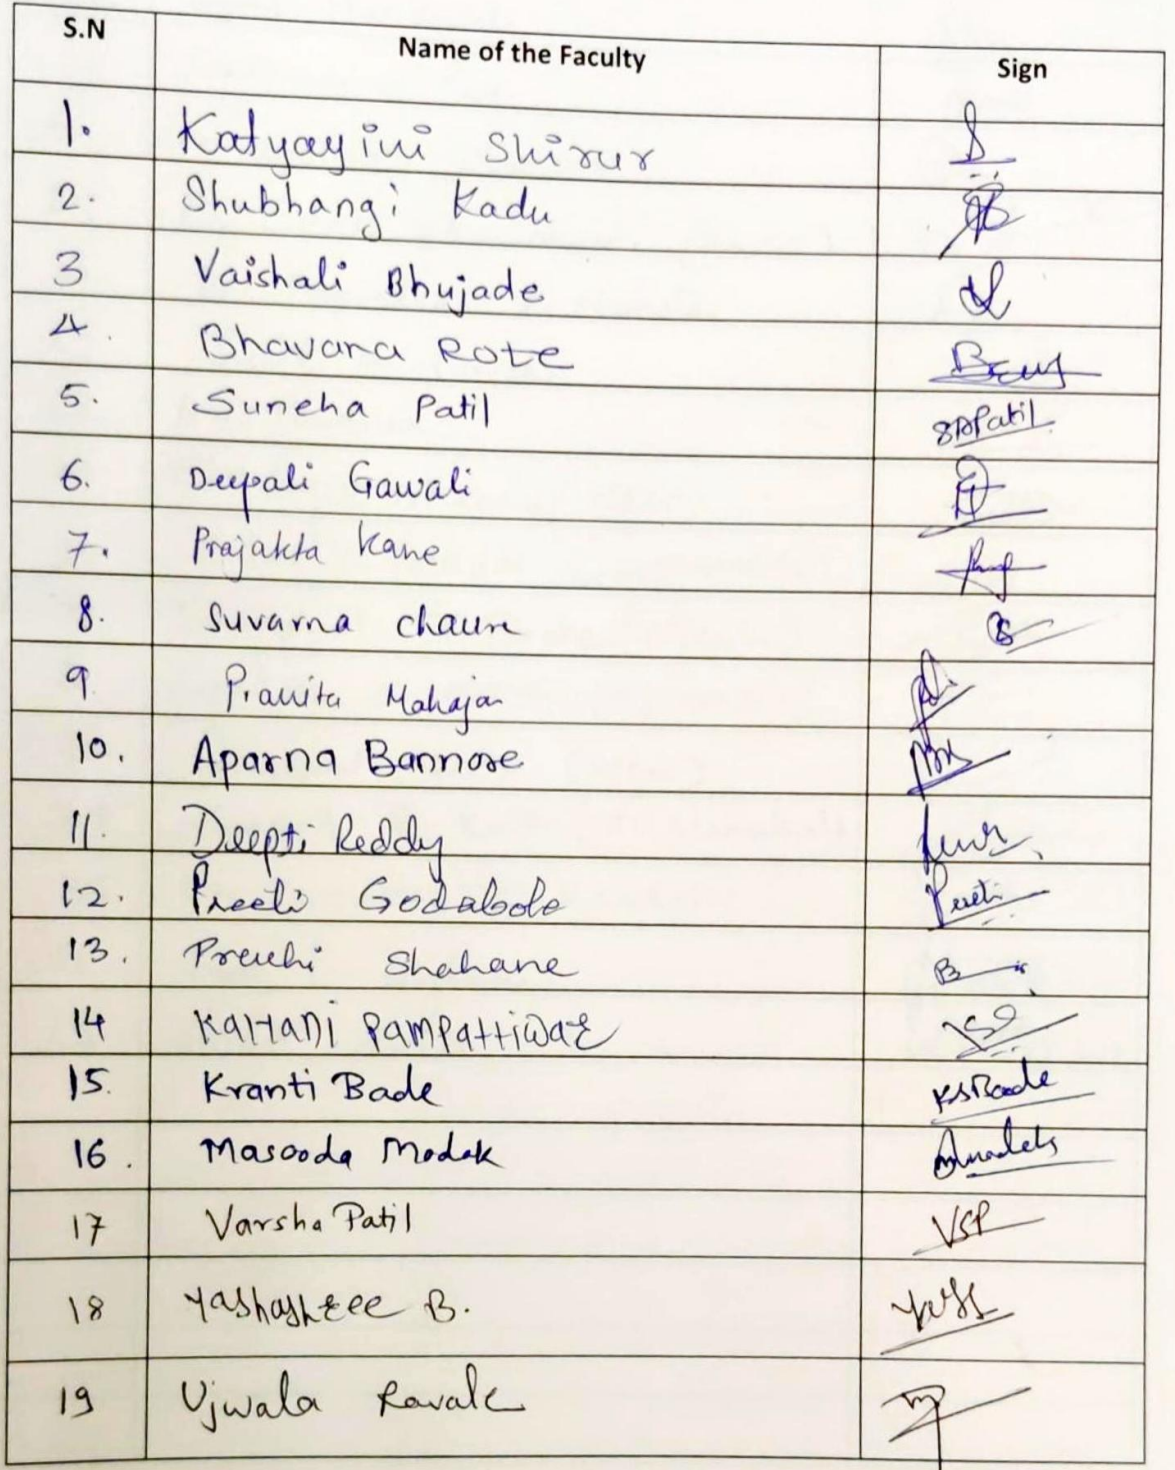 S.N Name of the Faculty Sign
1. Katyayini Shirur
2. Shubhangi Kadu
3 Vaishali Bhujade
4. Bhavana Rote
5. Suneha Patil SAPatil
6. Deepali Gawali
7. Prajakta Kane
8. Suvarna chaure
9 Pranita Mahajan
10. Aparna Bannore
11. Deepti Reddy
12. Preeti Godabole Preeti
13. Preethi Shahane
14 Kalyani Pampattiwar
15. Kranti Bade KSBade
16. Masooda Modak
17 Varsha Patil VSP
18 Yashashree B.
19 Ujwala Ravale